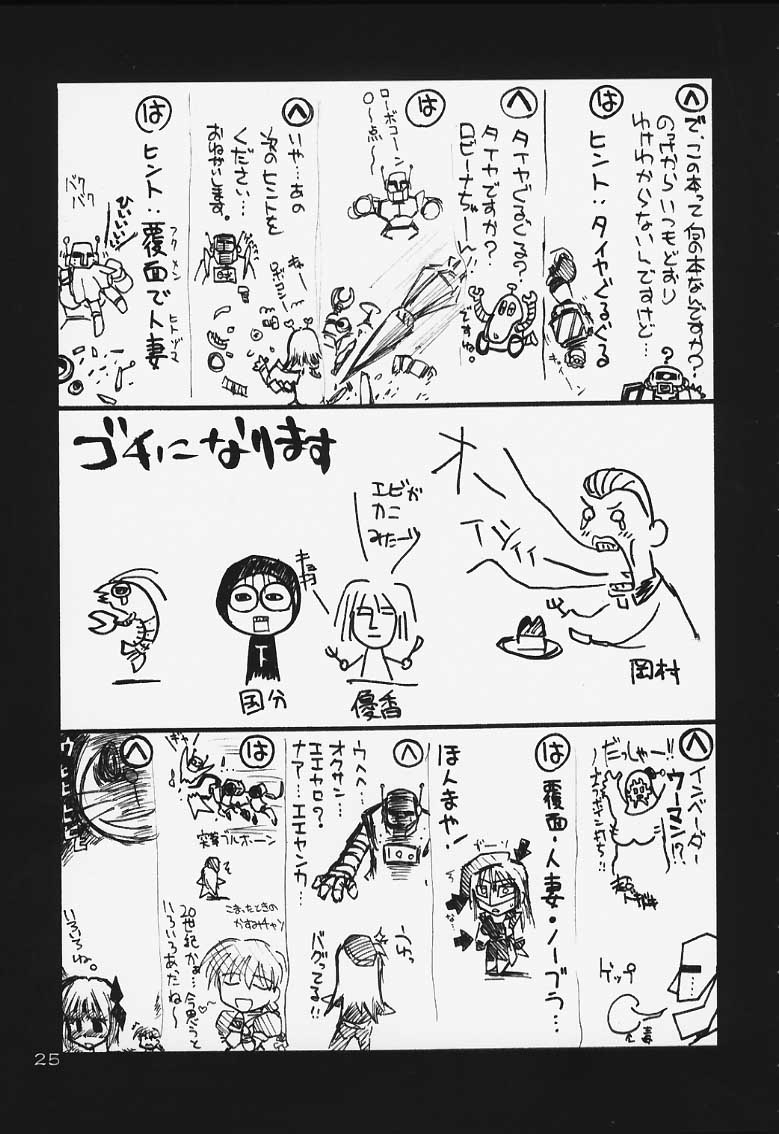 へ
で、この本って何の本なんですか?
のっけからいつもどおり
わけわからないんですけど…
?
は
ヒント:タイヤぐるぐる
へ
タイヤぐるぐる?
タイヤですか?
ロビーナちゃーん
ですね。
は
ローボコーン
0〜点〜
へ
いや…あの
次のヒントを
ください…
おねがいします。
きゅー
ロボコン!
は
ヒント:覆面で人妻
フク メン
ヒトヅマ
ひいいいい!!
バク
バク
ゴチになります
オーイシイィ
岡村
エビが
カニ
みたーいっ
優香
キョロ
国分
下
へ
インベーダー
ウーマン!?
だっしゃー!!
ゲップ
毒
は
覆面・人妻・ノーブラ…
ほんまや!
ゴーー
な…
へ
ウヘヘ…
オクサン…
エエヤロ?
ナア…エエヤンカ…
うわっ
バグってる!!
は
ギャ!
突撃ブルホーン
そ
こまったときの
かすみチャン
20世紀かぁ…今思うと
いろいろあったね〜
へ
ウヒヒヒヒヒ
いろいろね。
25